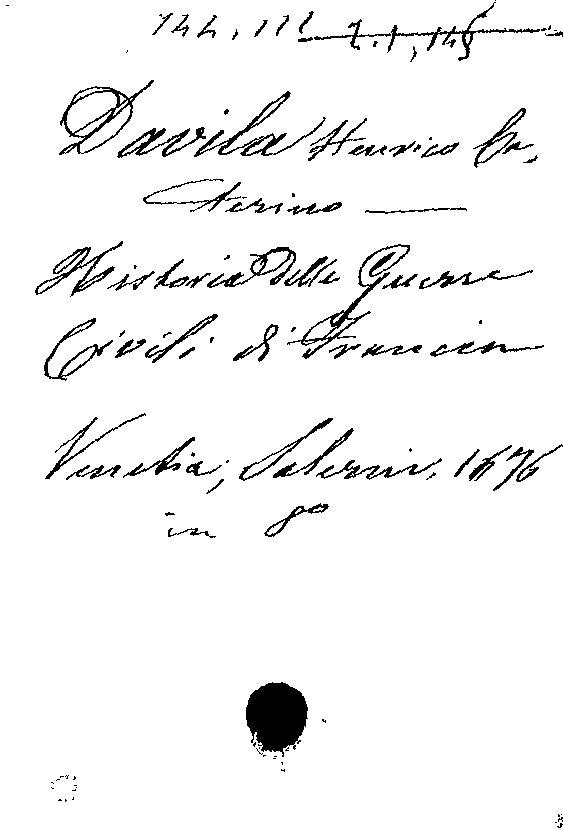 144, 111 Z. 1, 145
Davila Henrico Ca-
terino —
Historia delle Guerre
Civili di Francia
Venetia, Salerni, 1676
in 8º